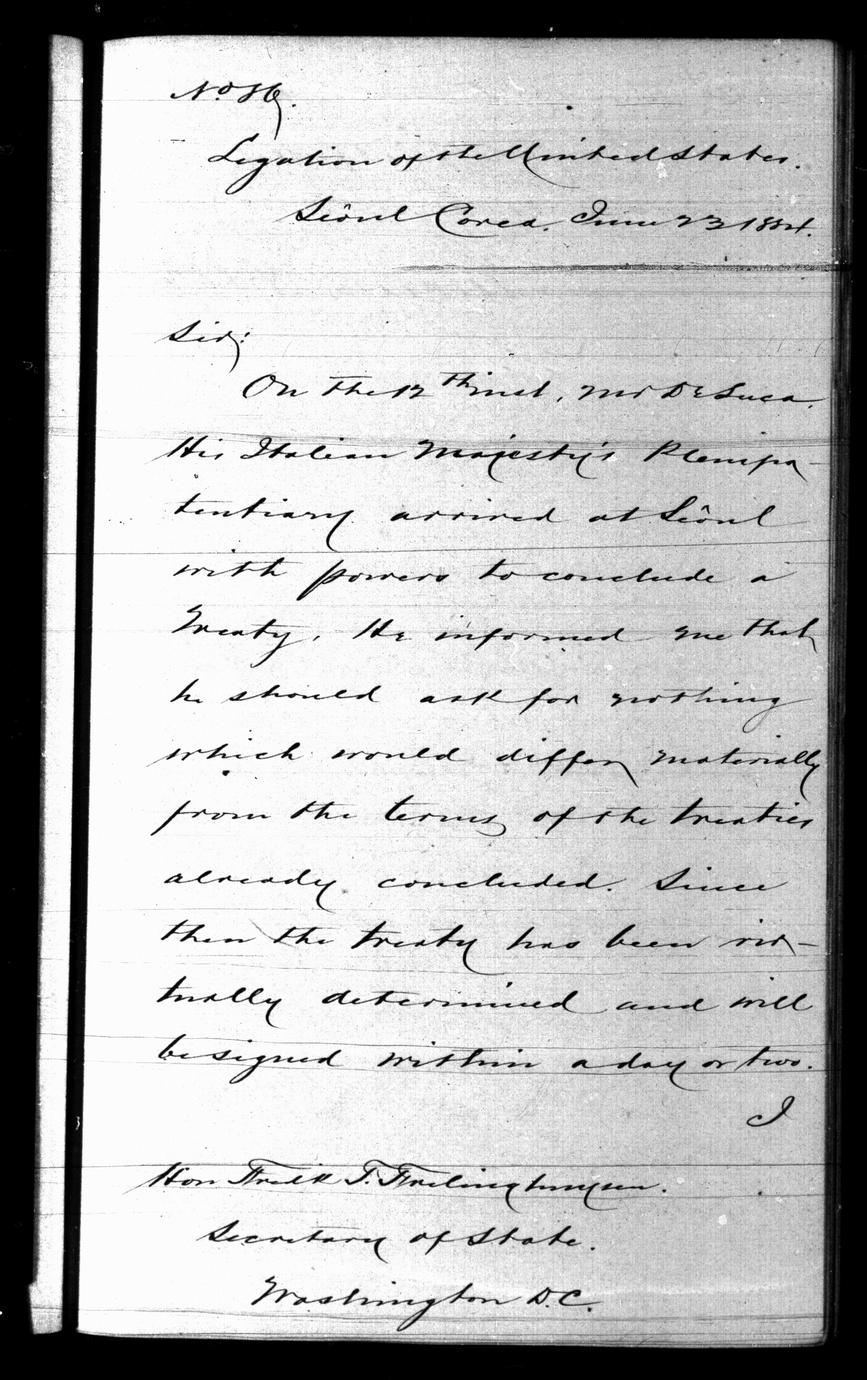 No 86.
Legation of the United States.
Seôul Corea. June 23 1884.
Sir:
On the 12th inst, Mr De Luca.
His Italian Majesty's Plenipo-
tentiary arrived at Seôul
with powers to conclude a
Treaty. He informed me that
he should ask for nothing
which would differ materially
from the terms of the treaties
already concluded. Since
then the treaty has been vir-
tually determined and will
be signed within a day or two.
I
Hon Fredk T. Frelinghuysen.
Secretary of State.
Washington D.C.